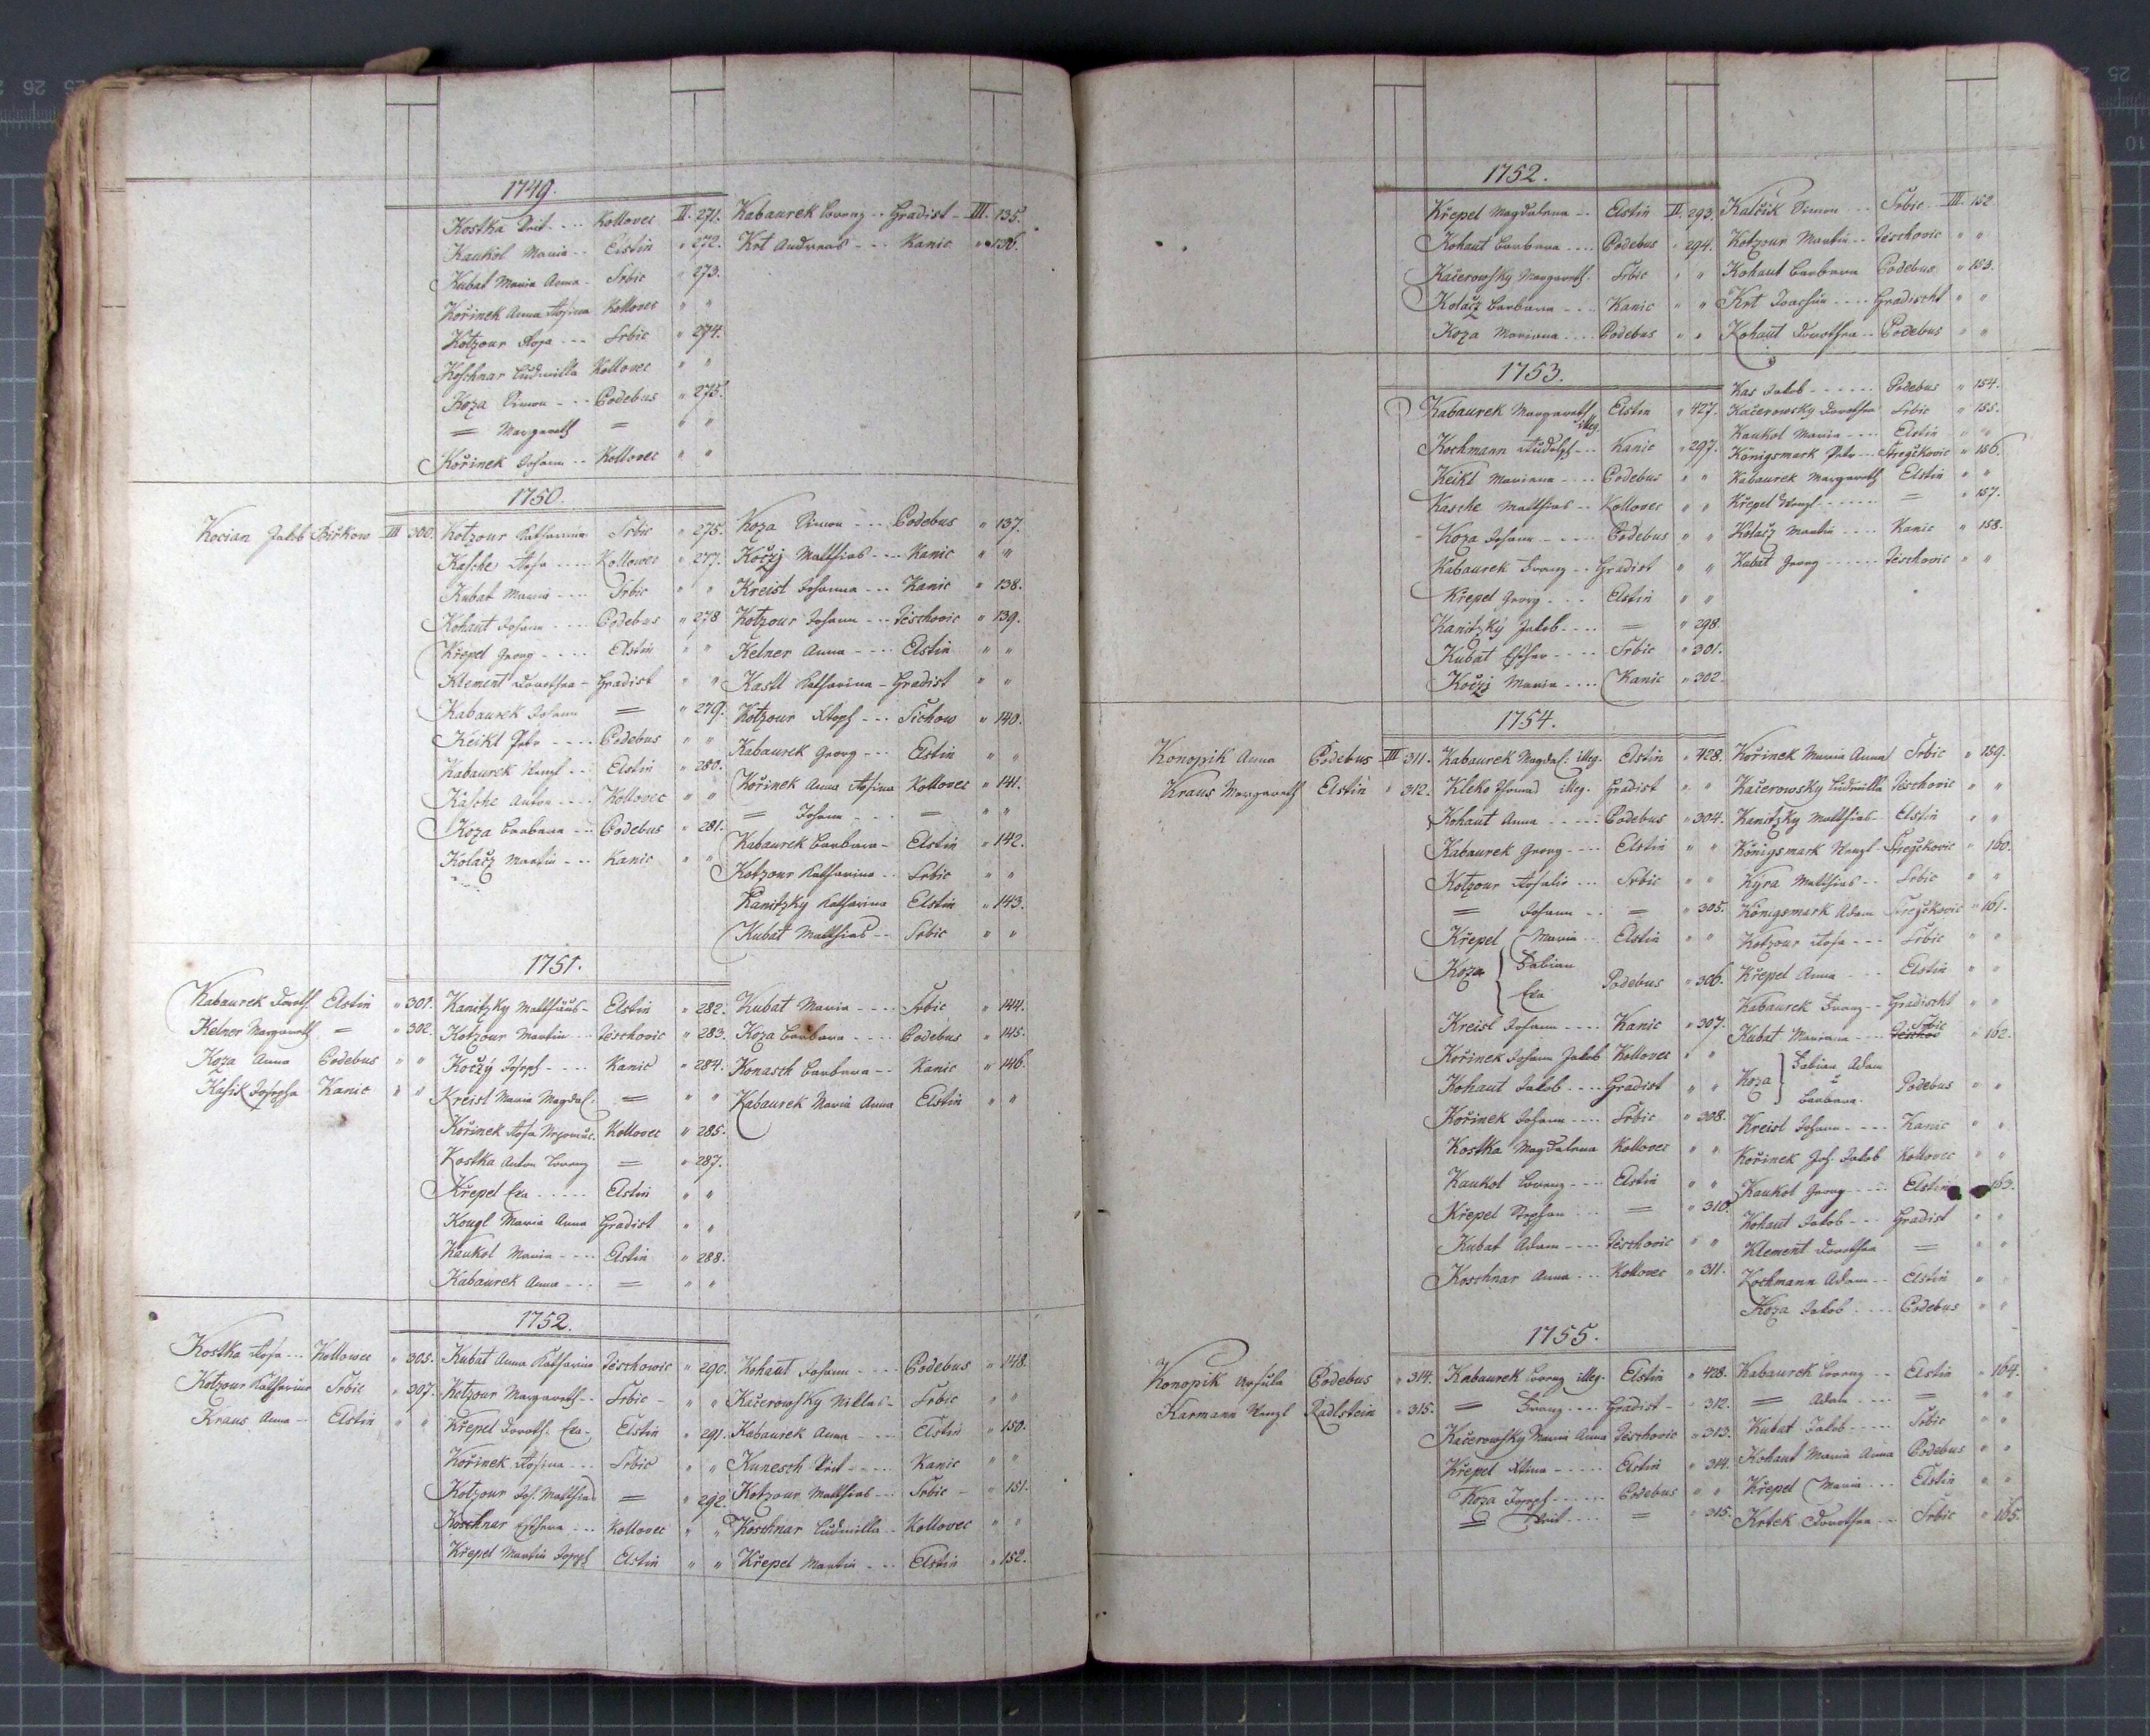 1749.
Kostka Veit - - - Kollovec II. 271. Kabaurek Lorenz - - Gradist - III. 135.
Kaukol Maria - - Elstin " 272. Krt Andreas - - - Kanic " 136.
Kubat Maria Anna - Srbic " 273.
Kořinek Anna Rosina Kollovec " "
Kotzour Rosa - - - Srbic " 274.
Koschnar Ludmilla Kollovec " "
Koza Simon - - - Podebus " 275.
= Margareth = " "
Kořinek Johann - - Kollovec " "
1750.
Kocian Jakob Birkow III 300. Kotzour Katharina Srbic " 275. Koza Simon - - - Podebus " 137.
Kasche Rosa - - - - Kollowec " 277. Koczj Matthias - - - Kanic " "
Kubat Maria - - - - Srbic " " Kreist Johanna - - - Kanic " 138.
Kohaut Johann - - - Podebus " 278 Kotzour Johann - - - Teschovic " 139.
Křepel Georg - - - - Elstin " " Kelner Anna - - - - Elstin " "
Klement Dorothea - Gradist " " Kastl Katharina - Gradist " "
Kabaurek Johann = " 279. Kotzour Stoph - - - Sichow " 140.
Keikl Petr - - - - Podebus " " Kabaurek Georg - - - Elstin " "
Kabaurek Wenzl - - Elstin " 280. Kořinek Anna Rosina Kollovec " 141.
Kasche Anton - - - - Kollovec " " = Johann - - - = " "
Koza Barbara - - - Podebus " 281. Kabaurek Barbara - Elstin " 142.
Kolačz Martin - - - Kanic " " Kotzour Katharina - - Srbic " "
Kanitzky Katharina Elstin " 143.
Kubat Matthias - - Srbic " "
1751.
Kabaurek Doroth. Elstin " 301. Kanitzky Matthäus - Elstin " 282. Kubat Maria - - - - Srbic " 144.
Kelner Margareth = " 302. Kotzour Martin - - - Teschovic " 283. Koza Barbara - - - - Podebus " 145.
Koza Anna Podebus " " Koczý Joseph - - - - Kanic " 284. Konasch Barbara - - Kanic " 146.
Kasik Josepha Kanic " " Kreist Maria Magdal. = " " Kabaurek Maria Anna Elstin " "
Kořinek Rosa Nepomuc. Kollovec " 285.
Kostka Anton Lorenz = " 287.
Křepel Eva - - - - - Elstin " "
Kougl Maria Anna Gradist " "
Kaukol Maria - - - - Elstin " 288.
Kabaurek Anna - - - = " "
1752.
Kostka Rosa - - - Kollowec " 305. Kubat Anna Katharina Teschowic " 290. Kohaut Johann - - - - Podebus " 148.
Kotzour Katharina Srbic " 307. Kotzour Margareth - - Srbic - " " Kačerowsky Niklas - Srbic " "
Kraus Anna - - Elstin " " Křepel Doroth. Eva - Elstin " 291. Kabaurek Anna - - - - Elstin " 150.
Kořinek Rosina - - - Srbic " " Kunesch Veit - - - - Kanic " "
Kotzour Joh. Matthias = " 292. Kotzour Matthias - - - Srbic - " 151.
Koschnar - - - Kollovec " " Koschnar Ludmilla - - Kollovec " "
Křepel Martin Joseph Elstin " " Křepel Martin - - - Elstin " 152.
1752.
Křepel Magdalena - - Elstin II. 293. Kalčik Simon - - - Srbic - III. 152
Kohaut Barbara - - - - Podebus " 294. Kotzour Martin - - Teschovic " "
Kačerowsky Margareth. Srbic " " Kohaut Barbara Podebus " 153.
Kolačz Barbara - - - - Kanic " " Krt Joachim - - - - Gradischt " "
Koza Mariana - - - - Podebus " " Kohaut Dorothea - - Podebus " "
1753.
Kas Jakob - - - - - - Podebus " 154.
Kabaurek Margareth illeg. Elstin " 427. Kačerowsky Dorothea Srbic " 155.
Kaukol Maria - - - - Elstin " "
Kochmann Rudolph - - - Kanic " 297. Königsmark Petr - - - Stregčkovic " 156.
Keikl Mariana - - - - Podebus " " Kabaurek Margareth Elstin " "
Kasche Matthias - - Kollovec " " Křepel Wenzl - - - - - = " 157.
Koza Johann - - - - - Podebus " " Kolačz Martin - - - - Kanic " 158.
Kabaurek Franz - - Gradist " " Kubat Georg - - - - - Teschovic " "
Křepel Georg - - - Elstin " "
Kanitzký Jakob - - - - = " 298.
Kubat Esther - - - - Srbic " 301.
Koczj Maria - - - - Kanic " 302.
1754.
Konopik Anna Podebus III 311. Kabaurek Magdal: illeg. Elstin " 428. Kořinek Maria Anna Srbic " 159.
Kraus Margareth Elstin " 312. Kleko Thomas illeg. Gradist " " Kačerowsky Ludmilla Teschovic " "
Kohaut Anna - - - - - Podebus " 304. Kanitzky Matthias - Elstin " "
Kabaurek Georg - - - - Elstin " " Königsmark Wenzl - Stregčkovic " 160.
Kotzour Rosalie - - - Srbic " " Kýra Matthias - - Srbic " "
= Johann - - = " 305. Königsmark Adam Stregčkovic " 161.
Křepel Maria - - Elstin " " Kotzour Rosa - - - Srbic " "
Koza } Fabian Eva Podebus " 306. Křepel Anna - - - Elstin " "
Kabaurek Franz - - Gradischt " "
Kreisl Johann - - - - Kanic " 307. Kubat Mariana - - - Teschov Srbic " 162.
Kořinek Johann Jakob Kollovec " "
Kohaut Jakob - - - - Gradist " " Koza } Fabian Adam u Barbara. Podebus " "
Kořinek Johann - - - - Srbic " 308. Kreisl Johann - - - - Kanic " "
Kostka Magdalena Kollovec " " Kořinek Joh. Jakob Kollovec " "
Kaukol Lorenz - - - - Elstin " " Kaukol Georg - - - - Elstin 163.
Křepel Stephan - - - = " 310. Kohaut Jakob - - - Gradist " "
Kubat Adam - - - - Teschovic " " Klement Dorothea = " "
Koschnar Anna - - - Kollovec " 311. Kochmann Adam - - Elstin " "
Koza Jakob - - - - Podebus " "
1755.
Konopik Ursula Podebus " 314. Kabaurek Lorenz illeg. Elstin " 428. Kabaurek Lorenz - - Elstin " 164.
Karmann Wenzl Radlstein " 315. = Franz - - - - Gradist - " 312. = Adam - - - - = " "
Kačerowsky Maria Anna Teschovic " 313. Kubat Jakob - - - - Srbic " "
Křepel - - - - - Elstin " 314. Kohaut Maria Anna Podebus " "
Koza Joseph - - - - - - Podebus " " Křepel Maria - - - Elstin " "
= Veit - - - - = " 315. Krtek Dorothea - - - Srbic " 165.